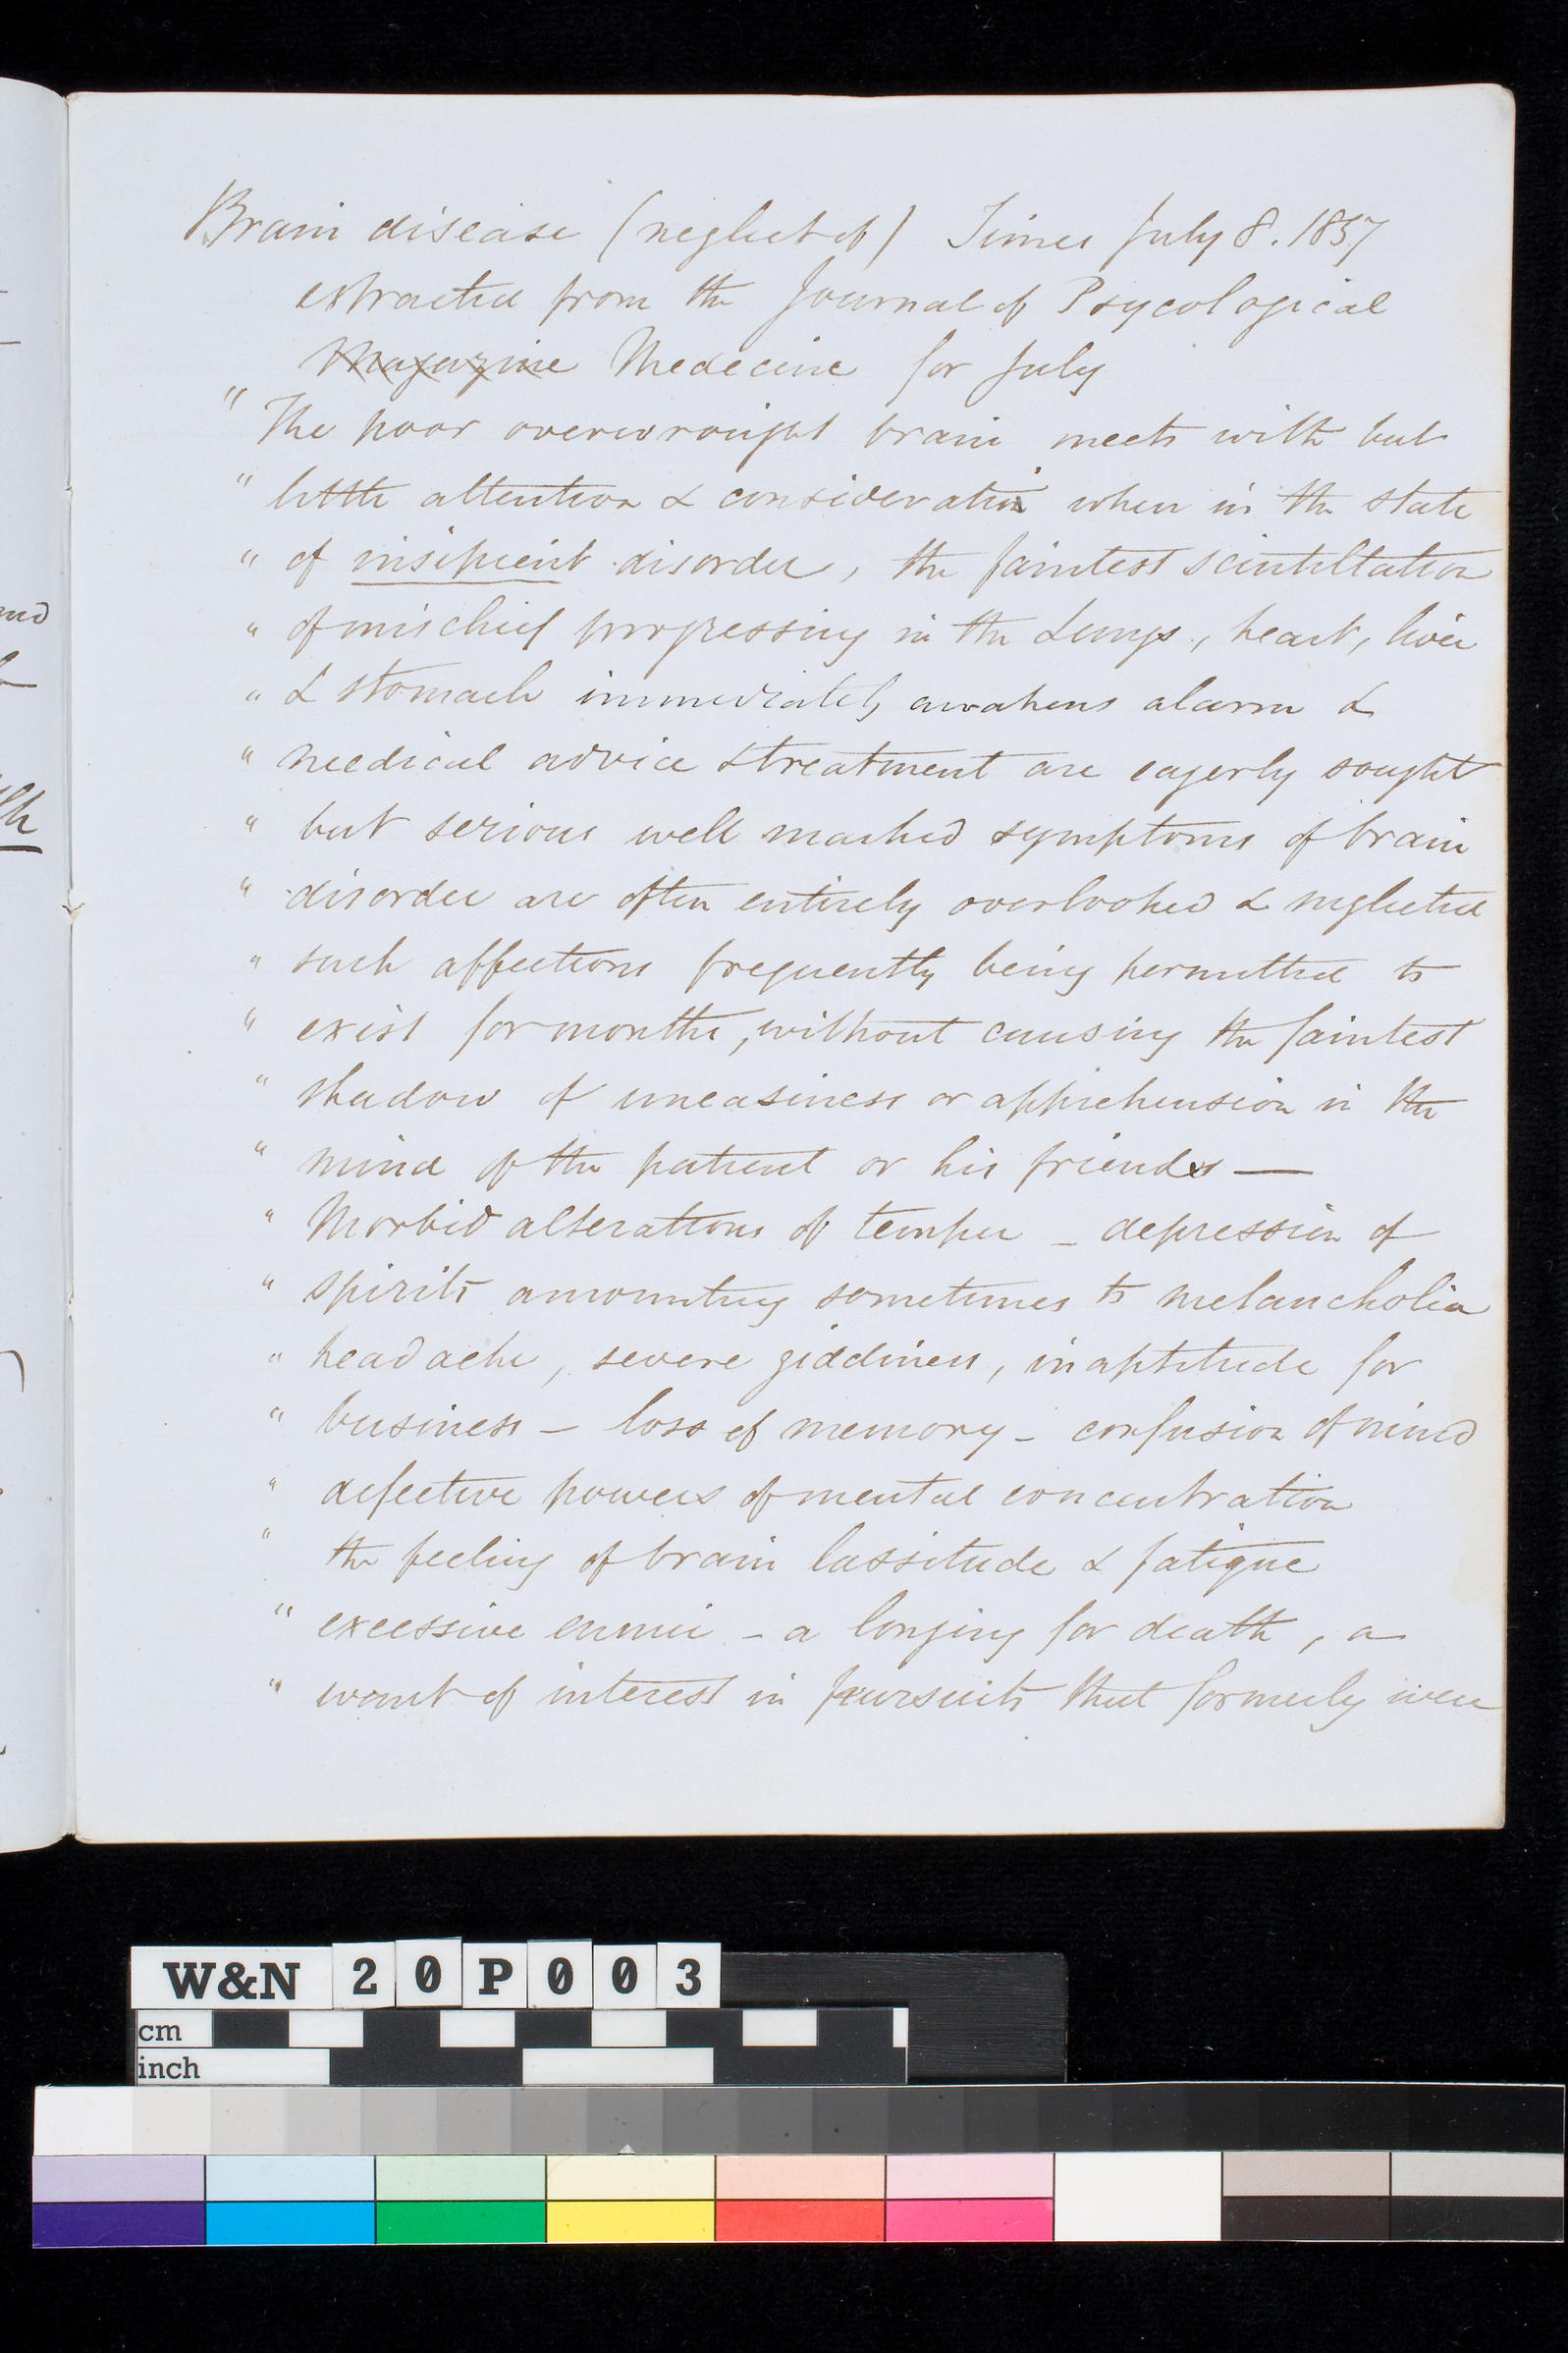 Brain disease (neglect of) Times July 8. 1857
extracted from the Journal of Psycological
Magazine Medecine for July
" The poor overwrought brain meets with but
" little attention & consideration when in the state
" of insipient disorder, the faintest scintillation
" of mischief progressing in the Lungs, heart, liver
" & stomach immediately awakens alarm &
" medical advice & treatment are eagerly sought
" but serious well marked symptoms of brain
" disorder are often entirely overlooked & neglected
" such affections frequently being permitted to
" exist for months, without causing the faintest
" shadow of uneasiness or apprehension in the
" mind of the patient or his friends —
" Morbid alterations of temper – depression of
" spirits amounting sometimes to melancholia
" headache, severe giddiness, inaptitude for
" business – loss of memory – confusion of mind
" defective powers of mental concentration
" the feeling of brain lassitude & fatigue
" excessive ennui – a longing for death, a
" want of interest in pursuits that formerly were
W&N 20P003
cm
inch